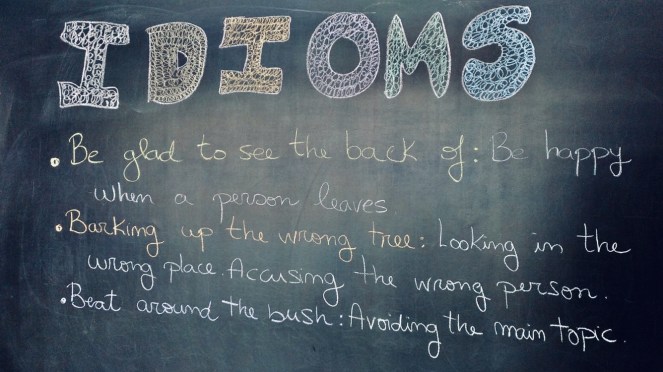 IDIOMS
• Be glad to see the back of: Be happy
when a person leaves
• Barking up the wrong tree: Looking in the
wrong place. Accusing the wrong person.
• Beat around the bush: Avoiding the main topic.